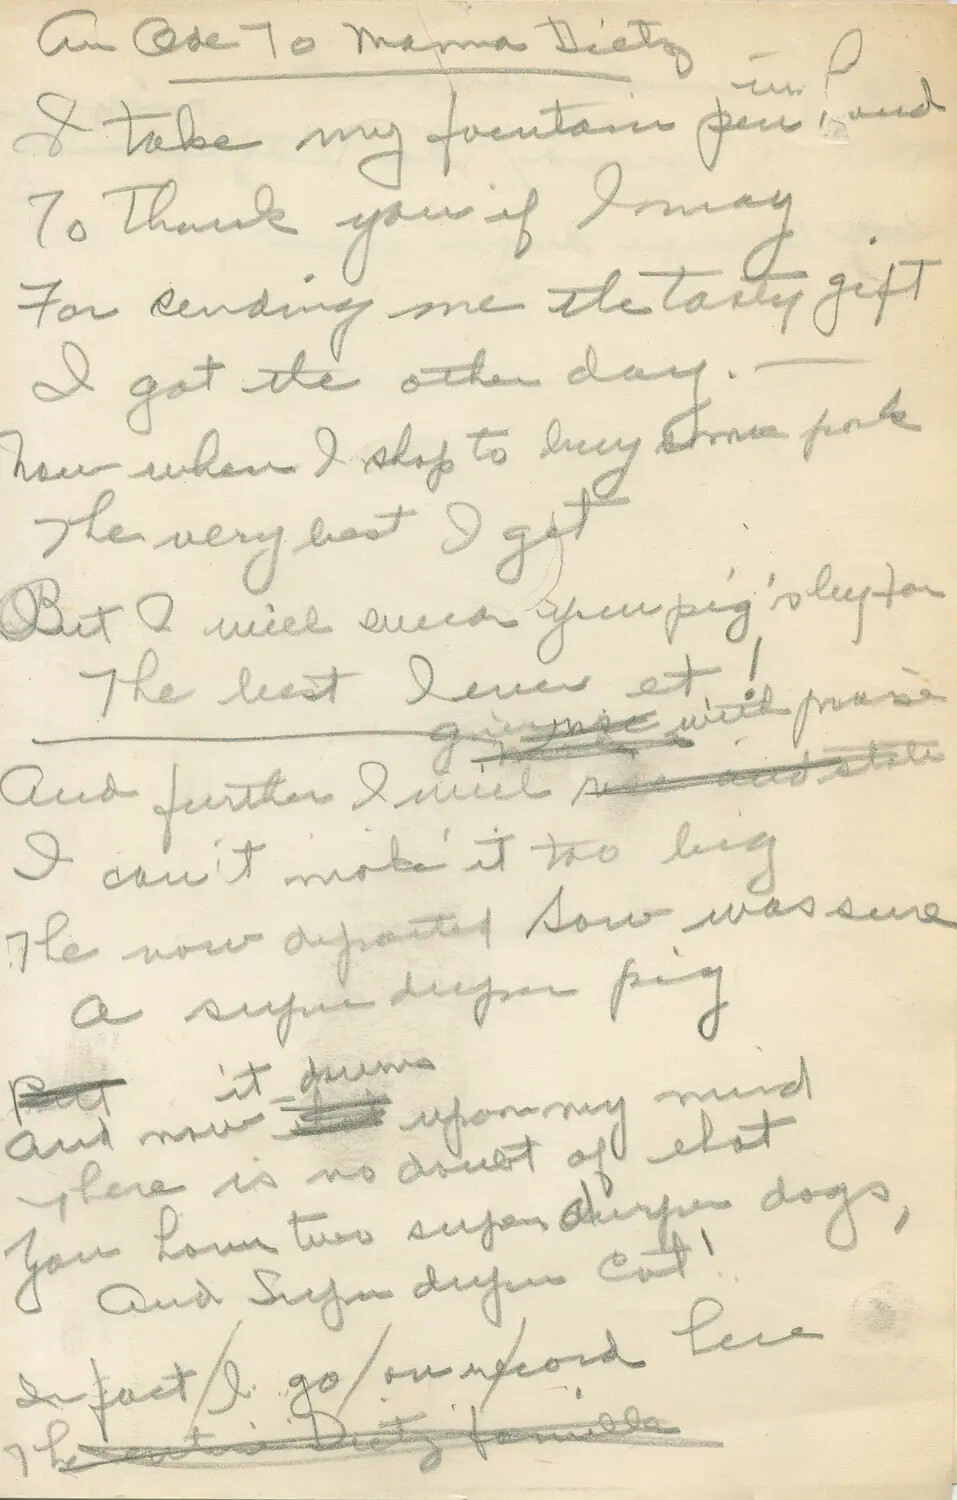 An Ode To Mamma Dietz
I take my fountain pen in hand
To Thank you if I may
For sending me the tasty gift
I got the other day. —
Now when I shop to buy some pork
The very best I get
But I will swear your pig's by far
The best I ever et!
give with praise
And further I will rise and state
I can't make it too big
The now departed Sow was sure
A super duper pig
But it dawns
And now upon my mind
There is no doubt of that
You have two super durper dogs,
And Super duper Cat!
In fact / I go / on re/cord here
The entire Dietz famille